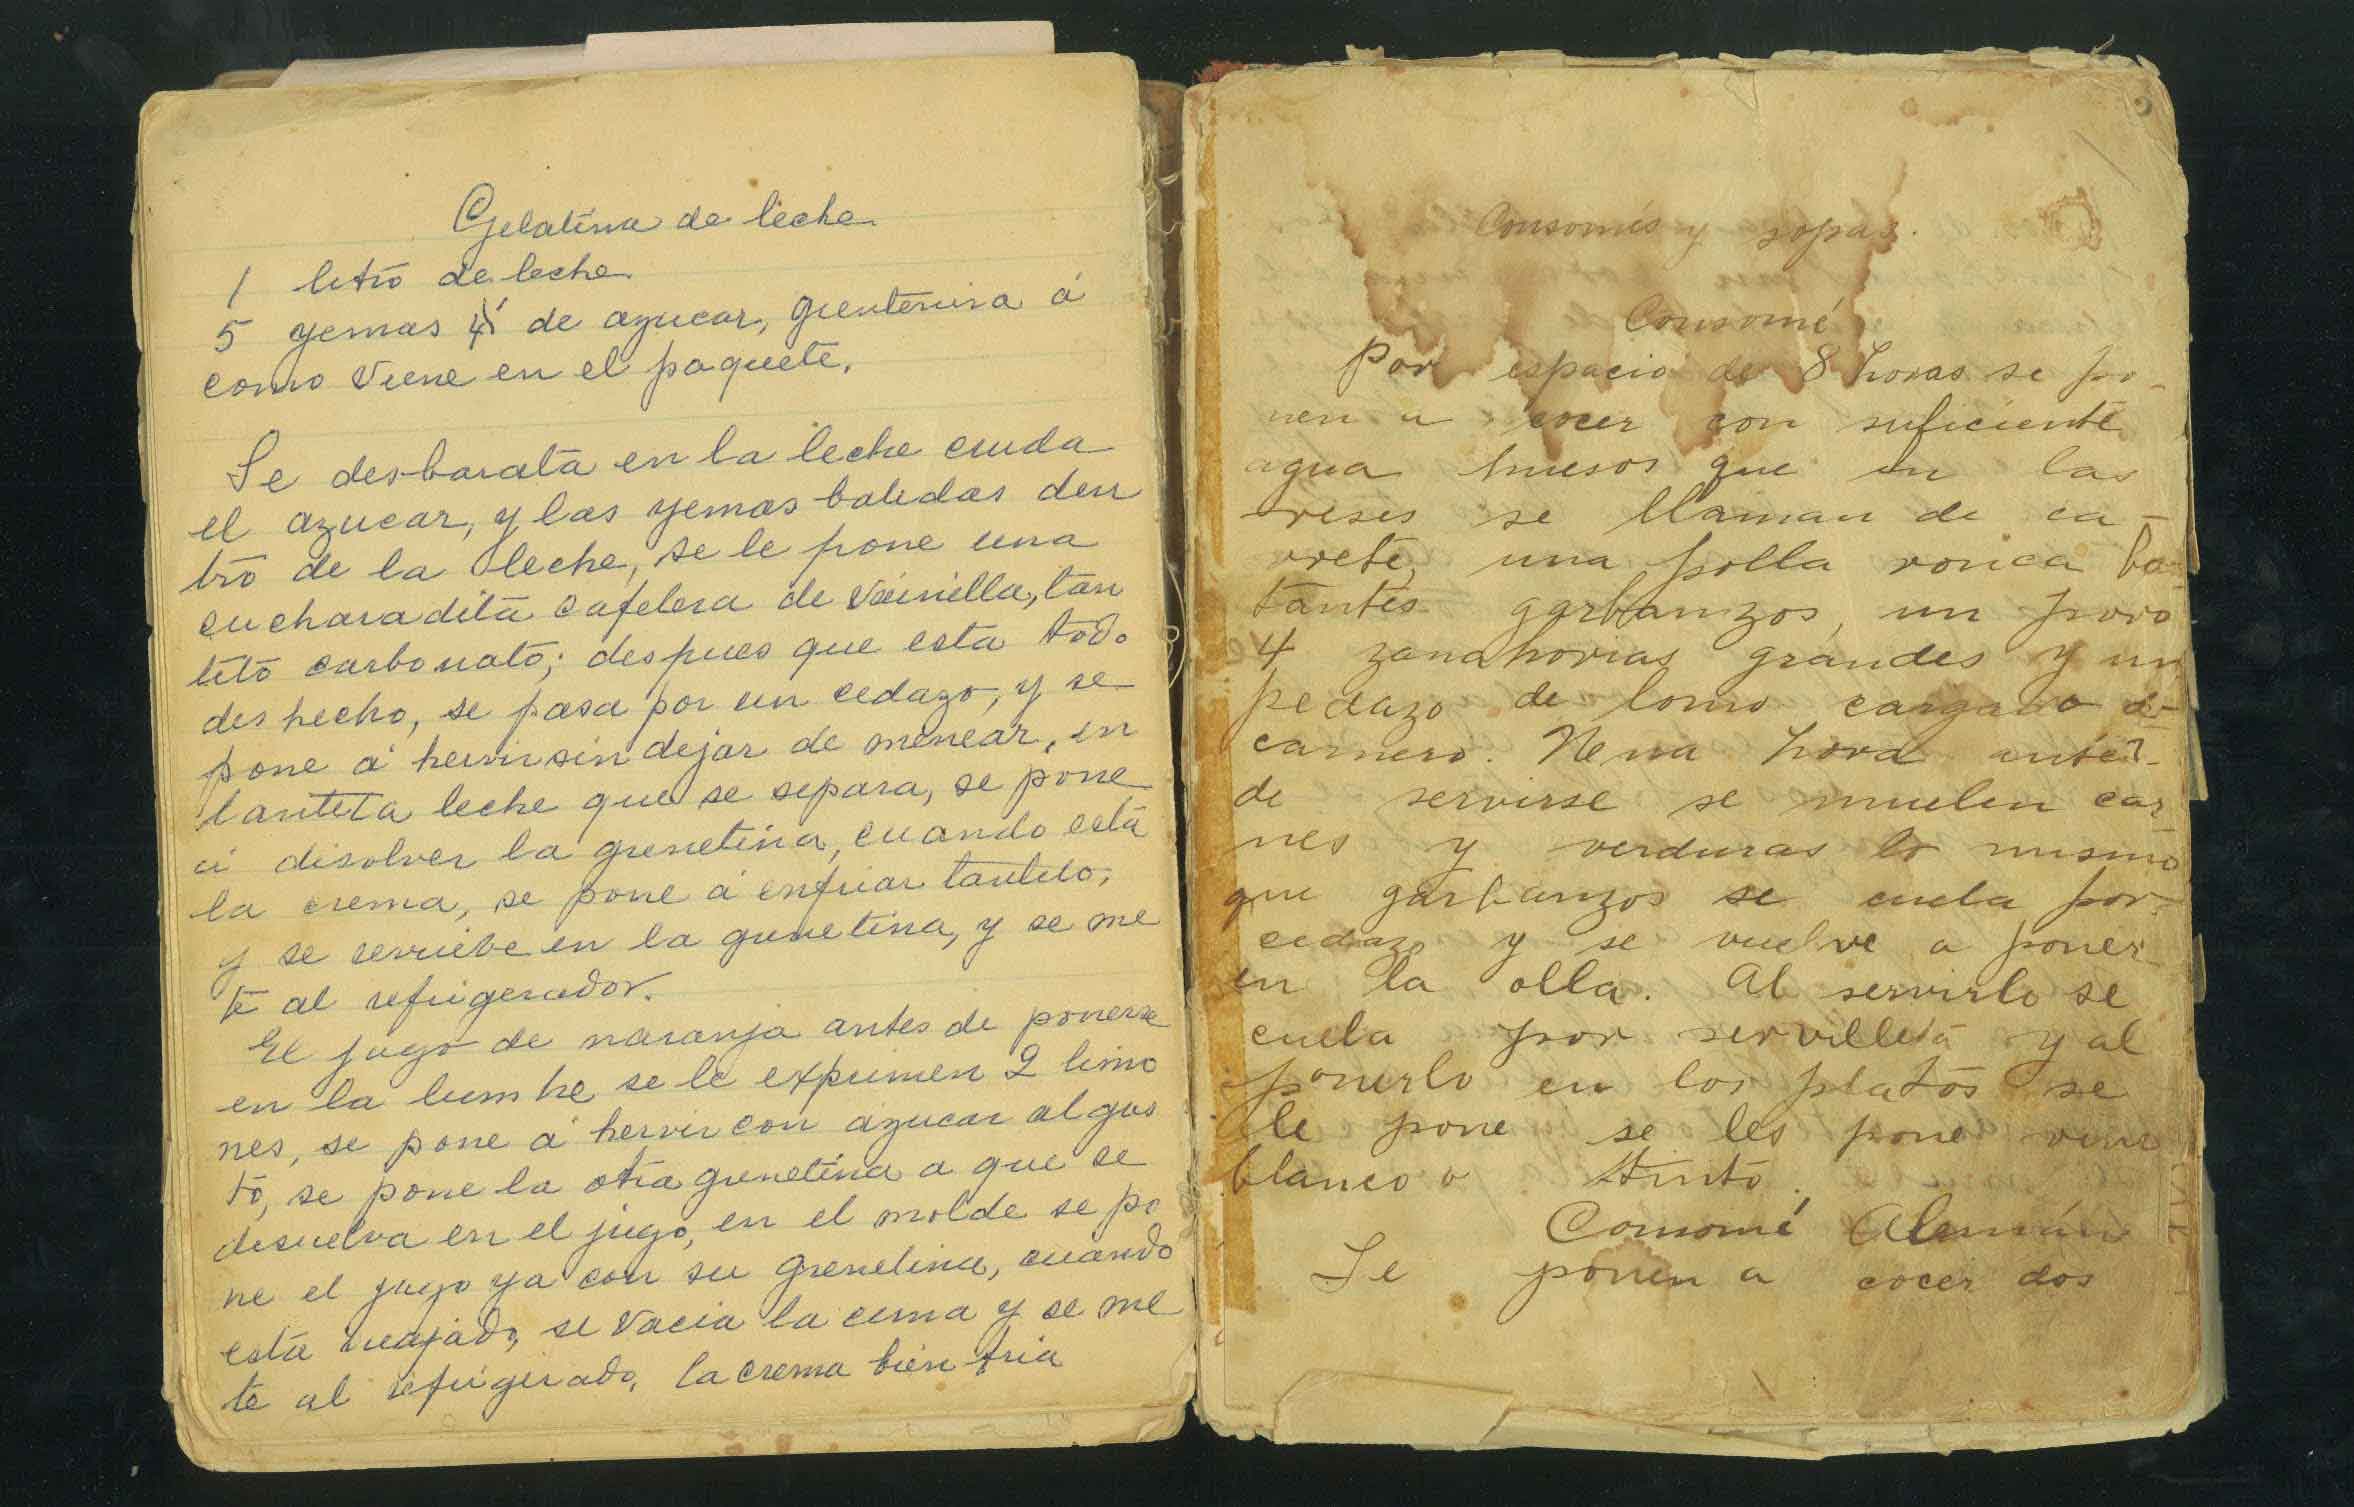 Gelatina de leche
1 litro de leche
5 yemas de azucar, grentenina á
como viene en el paquete.
Se desbarata en la leche cruda
el azucar, y las yemas batidas den
tro de la leche, se le pone una
cucharadita cafetera de vainilla, tan
tito carbonato; despues que esta todo
deshecho, se pasa por un cedazo, y se
pone á hervir sin dejar de menear, en
tantita leche que se separa, se pone
á disolver la grenetina, cuando está
la crema, se pone á enfriar tantito,
y se revuelve en la grenetina, y se me
te al refrigerador.
El jugo de naranja antes de ponerse
en la lumbre se le exprimen 2 limo
nes, se pone á hervir con azucar al gus
to, se pone la otra grenetina a que se
disuelva en el jugo, en el molde se po
ne el jugo ya con su grenetina, cuando
está cuajado, se vacia la crema y se me
te al refrigerado, la crema bien fria
2
Consomés y sopas.
Consomé
Por espacio de 8 horas se po-
nen a cocer con suficiente
agua huesos que en las
reses se llaman de ca-
rrete, una polla ronca ba-
tantes garbanzos, un poro
4 zanahorias grandes y un
pedazo de lomo cargado de
carnero. Nena hora antes
de servirse se muelen car
nes y verduras lo mismo
que garbanzos se cuela por
cedazo y se vuelve a poner
en la olla. Al servirlo se
cuela por servilleta y al
ponerlo en los platos se
le pone se les pone vino
blanco o tinto.
Consomé Alemán
Se ponen a cocer dos